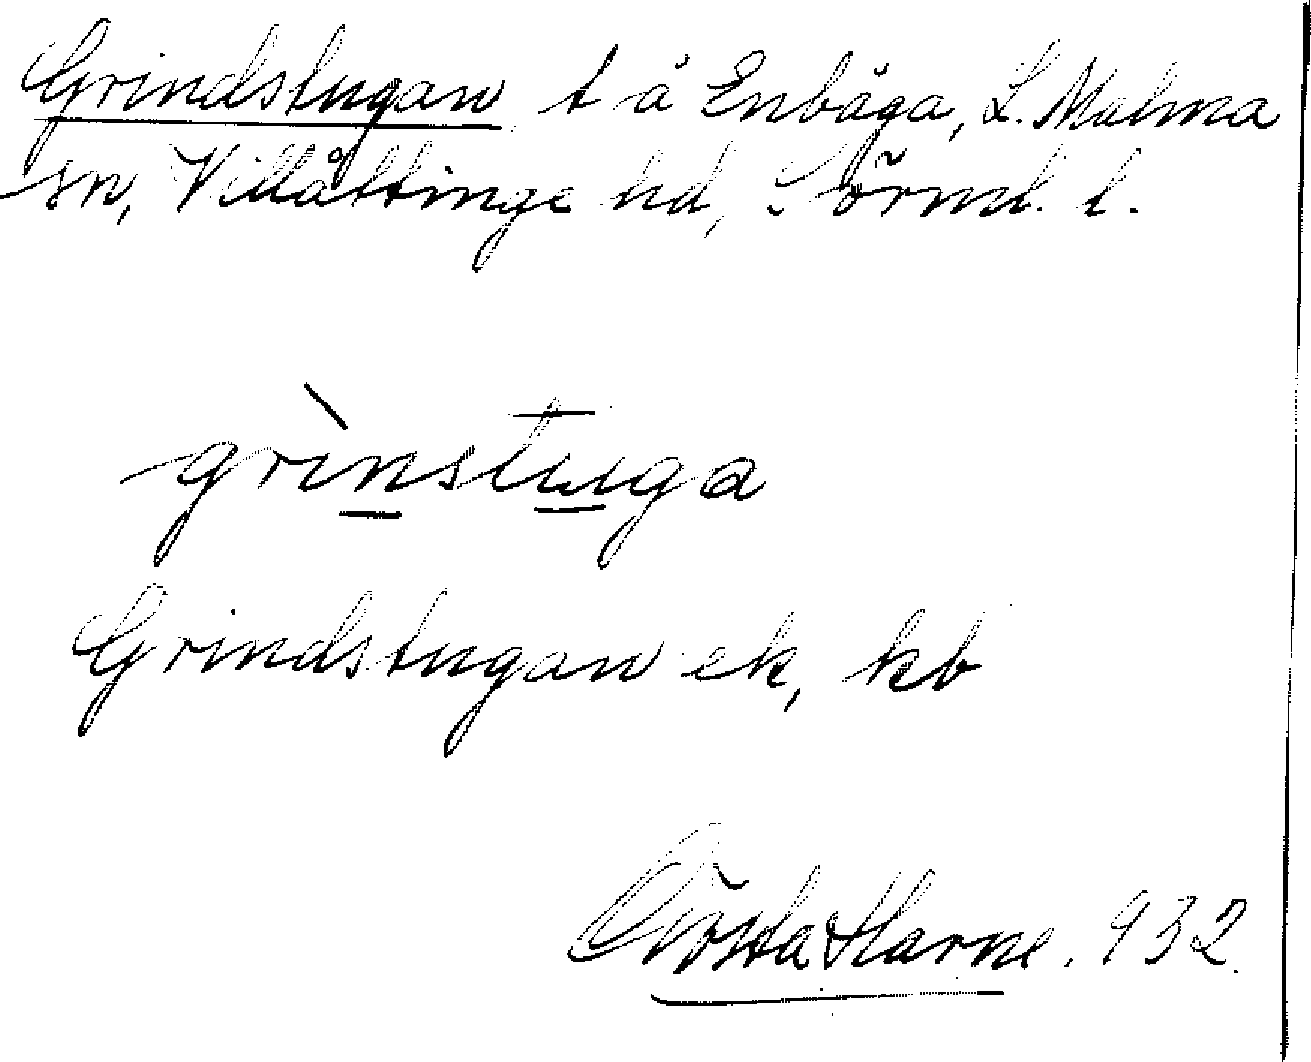 Grindstugan t å Enbåga, L. Malma
sn, Villåttinge hd, Sörml. l.
grìnstuga
Grindstugan ek, kb
Gösta Harne. 932.